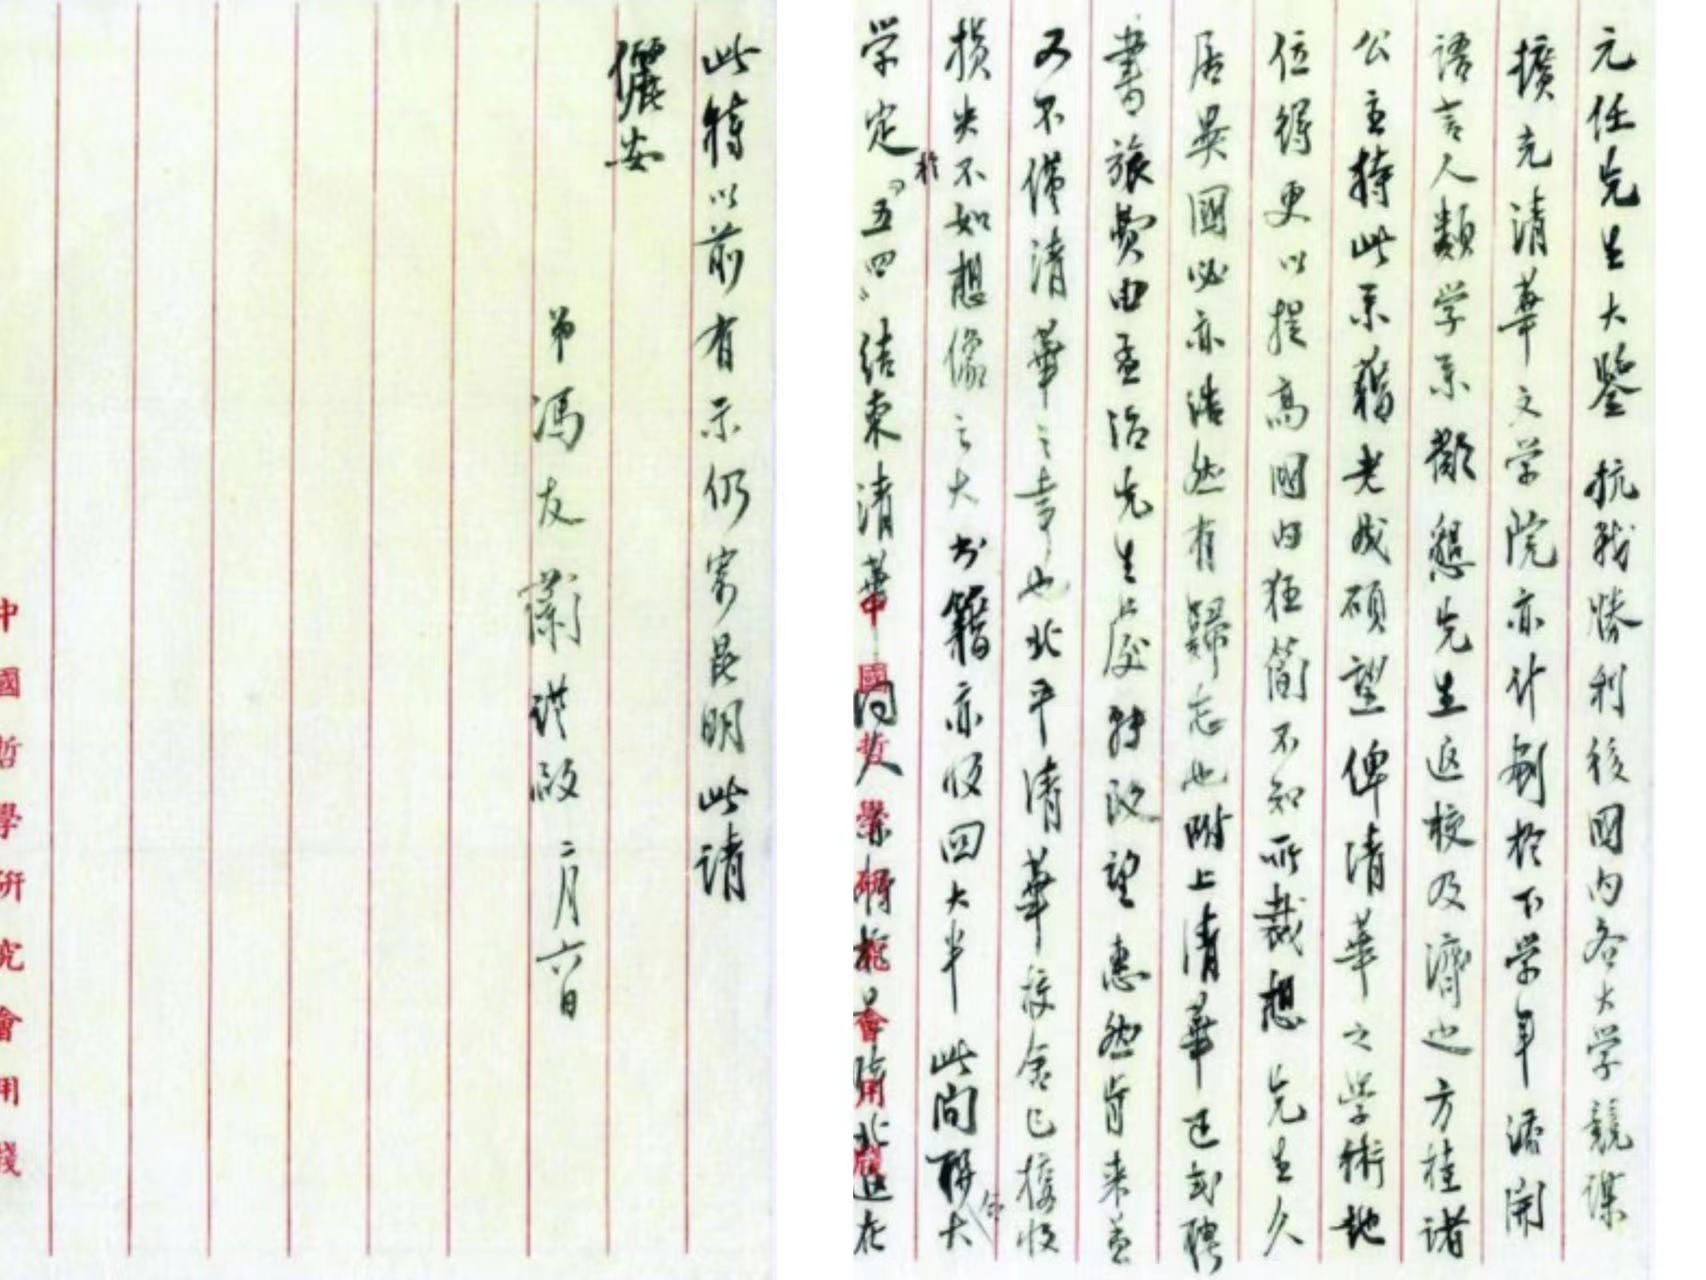 元任先生大鑒抗戰勝利後國内各大学競謀
擴充清華文学院亦计劃於下学年添開
語言人類学系懇先生返校及濟之方桂诸
公主持此系藉老成碩望俾清華之学術地
位得更以提高国内狂簡不知所裁想先生久
居異國必亦浩然有歸志也附上清華正式聘
書旅費由孟治先生處轉致望惠然肯来豈
又不僅清華之幸也北平清華校舍已接收
损失不如想像之大书籍亦收回大半此间聯大
学定於“五四”结束清華
同人業将於是時北返在
此時以前有示仍寄昆明此请
儷安
弟馮友蘭谨啟二月六日
中國哲學研究會用箋
中國哲學研究會用箋